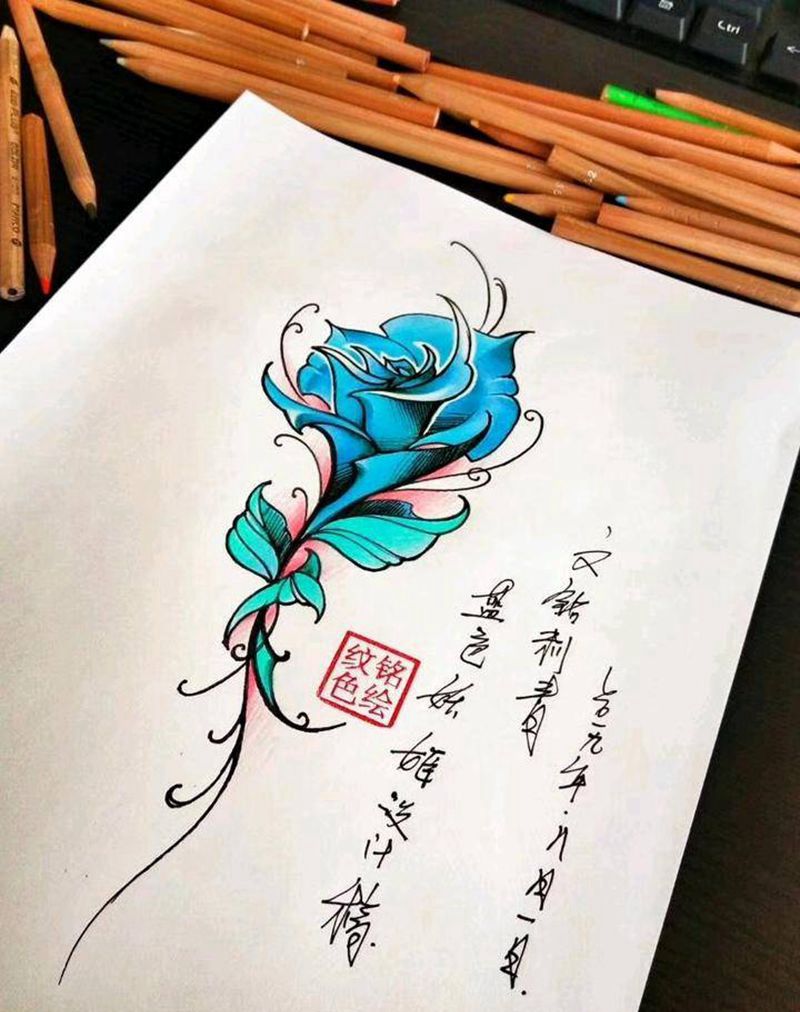 Ctrl
刺青
蓝色妖姬设计稿
一九年
月一日.
铭绘
纹色